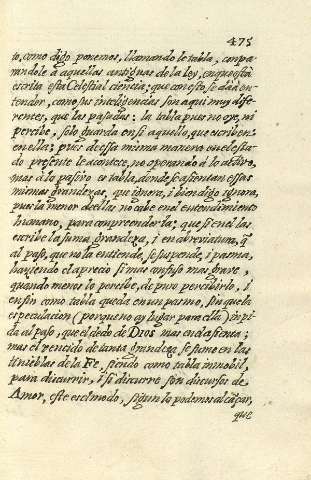 475
to, como digo ponemos, llamandole tabla, compa
randole à aquellas antiguas de la ley, en que està
escrita esta Celestial ciencia; que con esto se dà à en-
tender, como sus inteligencias son aqui muy dife-
rentes, que las pasadas: la tabla pues no oye, ni
percibe, solo guarda en si aquello, que escriben
en ella; pues de essa misma manera en el esta-
do presente le acontece, no operando à lo activo,
mas à lo pasivo es tabla, donde se asientan essas
mismas grandezas, que ignora, i bien digo ignora,
pues la menor de ellas no cabe en el entendimiento
humano, para comprenderla; que si en el las
escribe la suma grandeza, i en abreviatura, q
al paso, que no la entiende, se suspende, i pasma,
haziendo el aprecio si mas confuso mas grave,
quando menos lo percibe, de puro percibirlo, i
en fin como tabla queda en un pasmo, sin que la
especulacion (porque no ay lugar para ella) impi-
da al paso, que el dedo de Dios mas en ella asienta;
mas el rendido de tanta grandeza se sume en las
tinieblas de la Fe, siendo como tabla inmobil,
para discurrir, i si discurre son discursos de
Amor, este es el modo, segun lo podemos alcãçar,
que